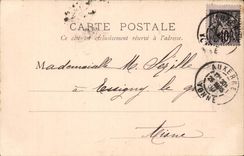 CARTE POSTALE
Ce côté est exclusivement réservé à l'adresse
10
AUXERRE
YONNE
Mademoiselle M.
à Essigny le g
Aisne